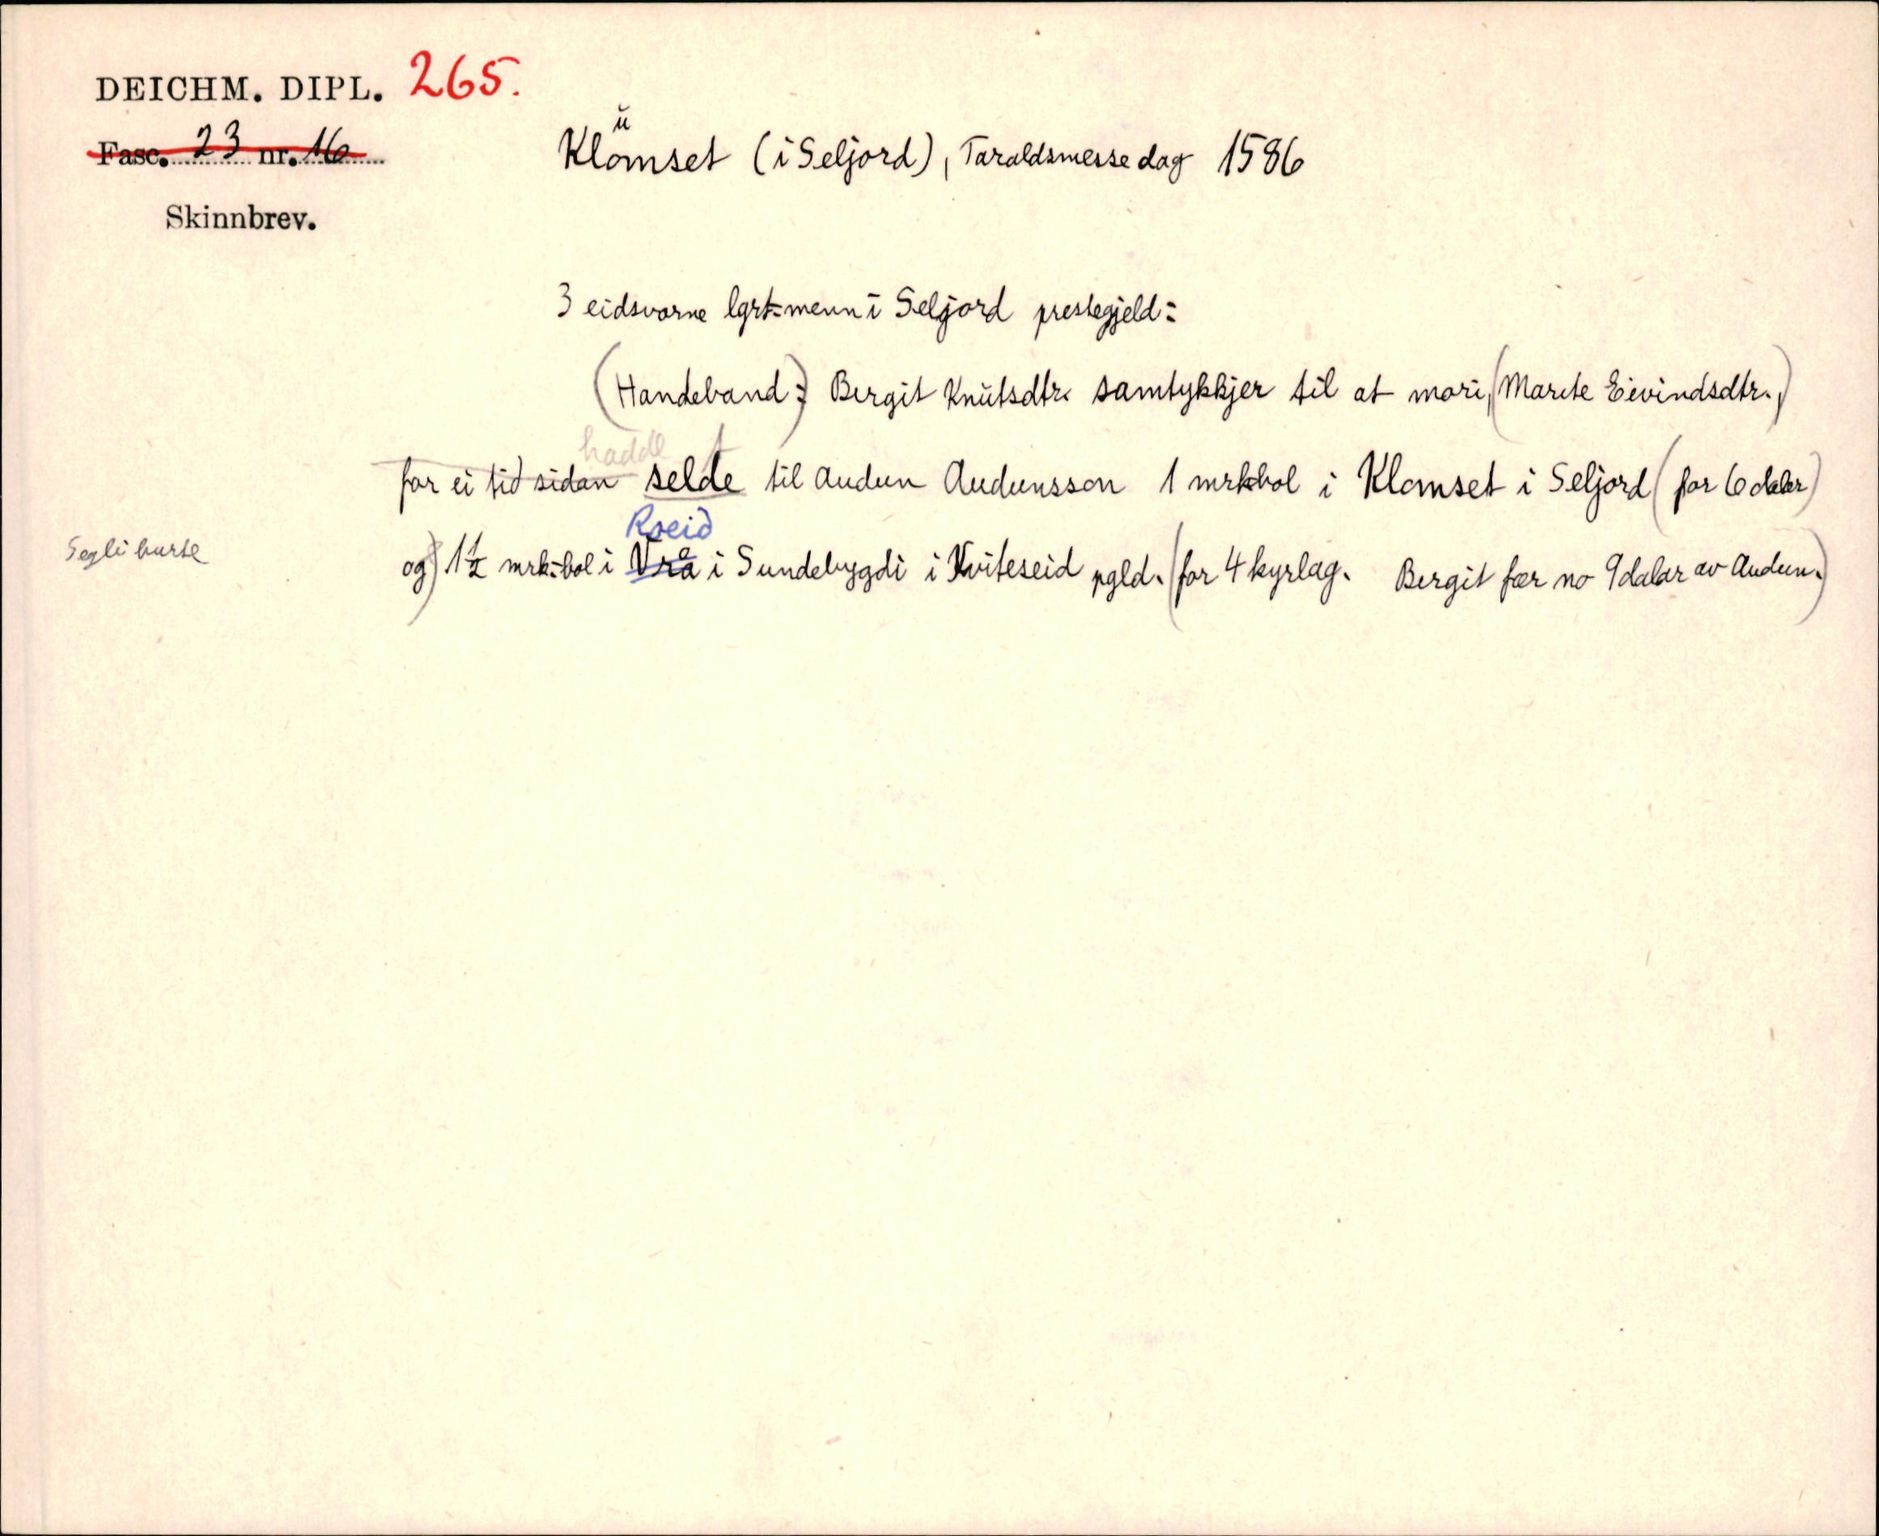 DEICHM. DIPL. 265.
Fasc. 23 nr. 16
Skinnbrev.
ŭ
Klomset (i Seljord), Taraldsmessedag 1586
3 eidsvorne lgrt=menn i Seljord prestegjeld:
(Handeband:) Bergit Knŭtsdtr. samtykkjer til at mori, (Marite Eivindsdtr.,)
hadde t
for ei tid sidan selde til Audun Audunsson 1 mrkbol i Klomset i Seljord (for 6 dalar)
Roeid
og) 1½ mrk.bol i Vrå i Sundebygdi i Kviteseid pgld. (for 4 kyrlag. Bergit fær no 9 dalar av Audun.)
Segli burte